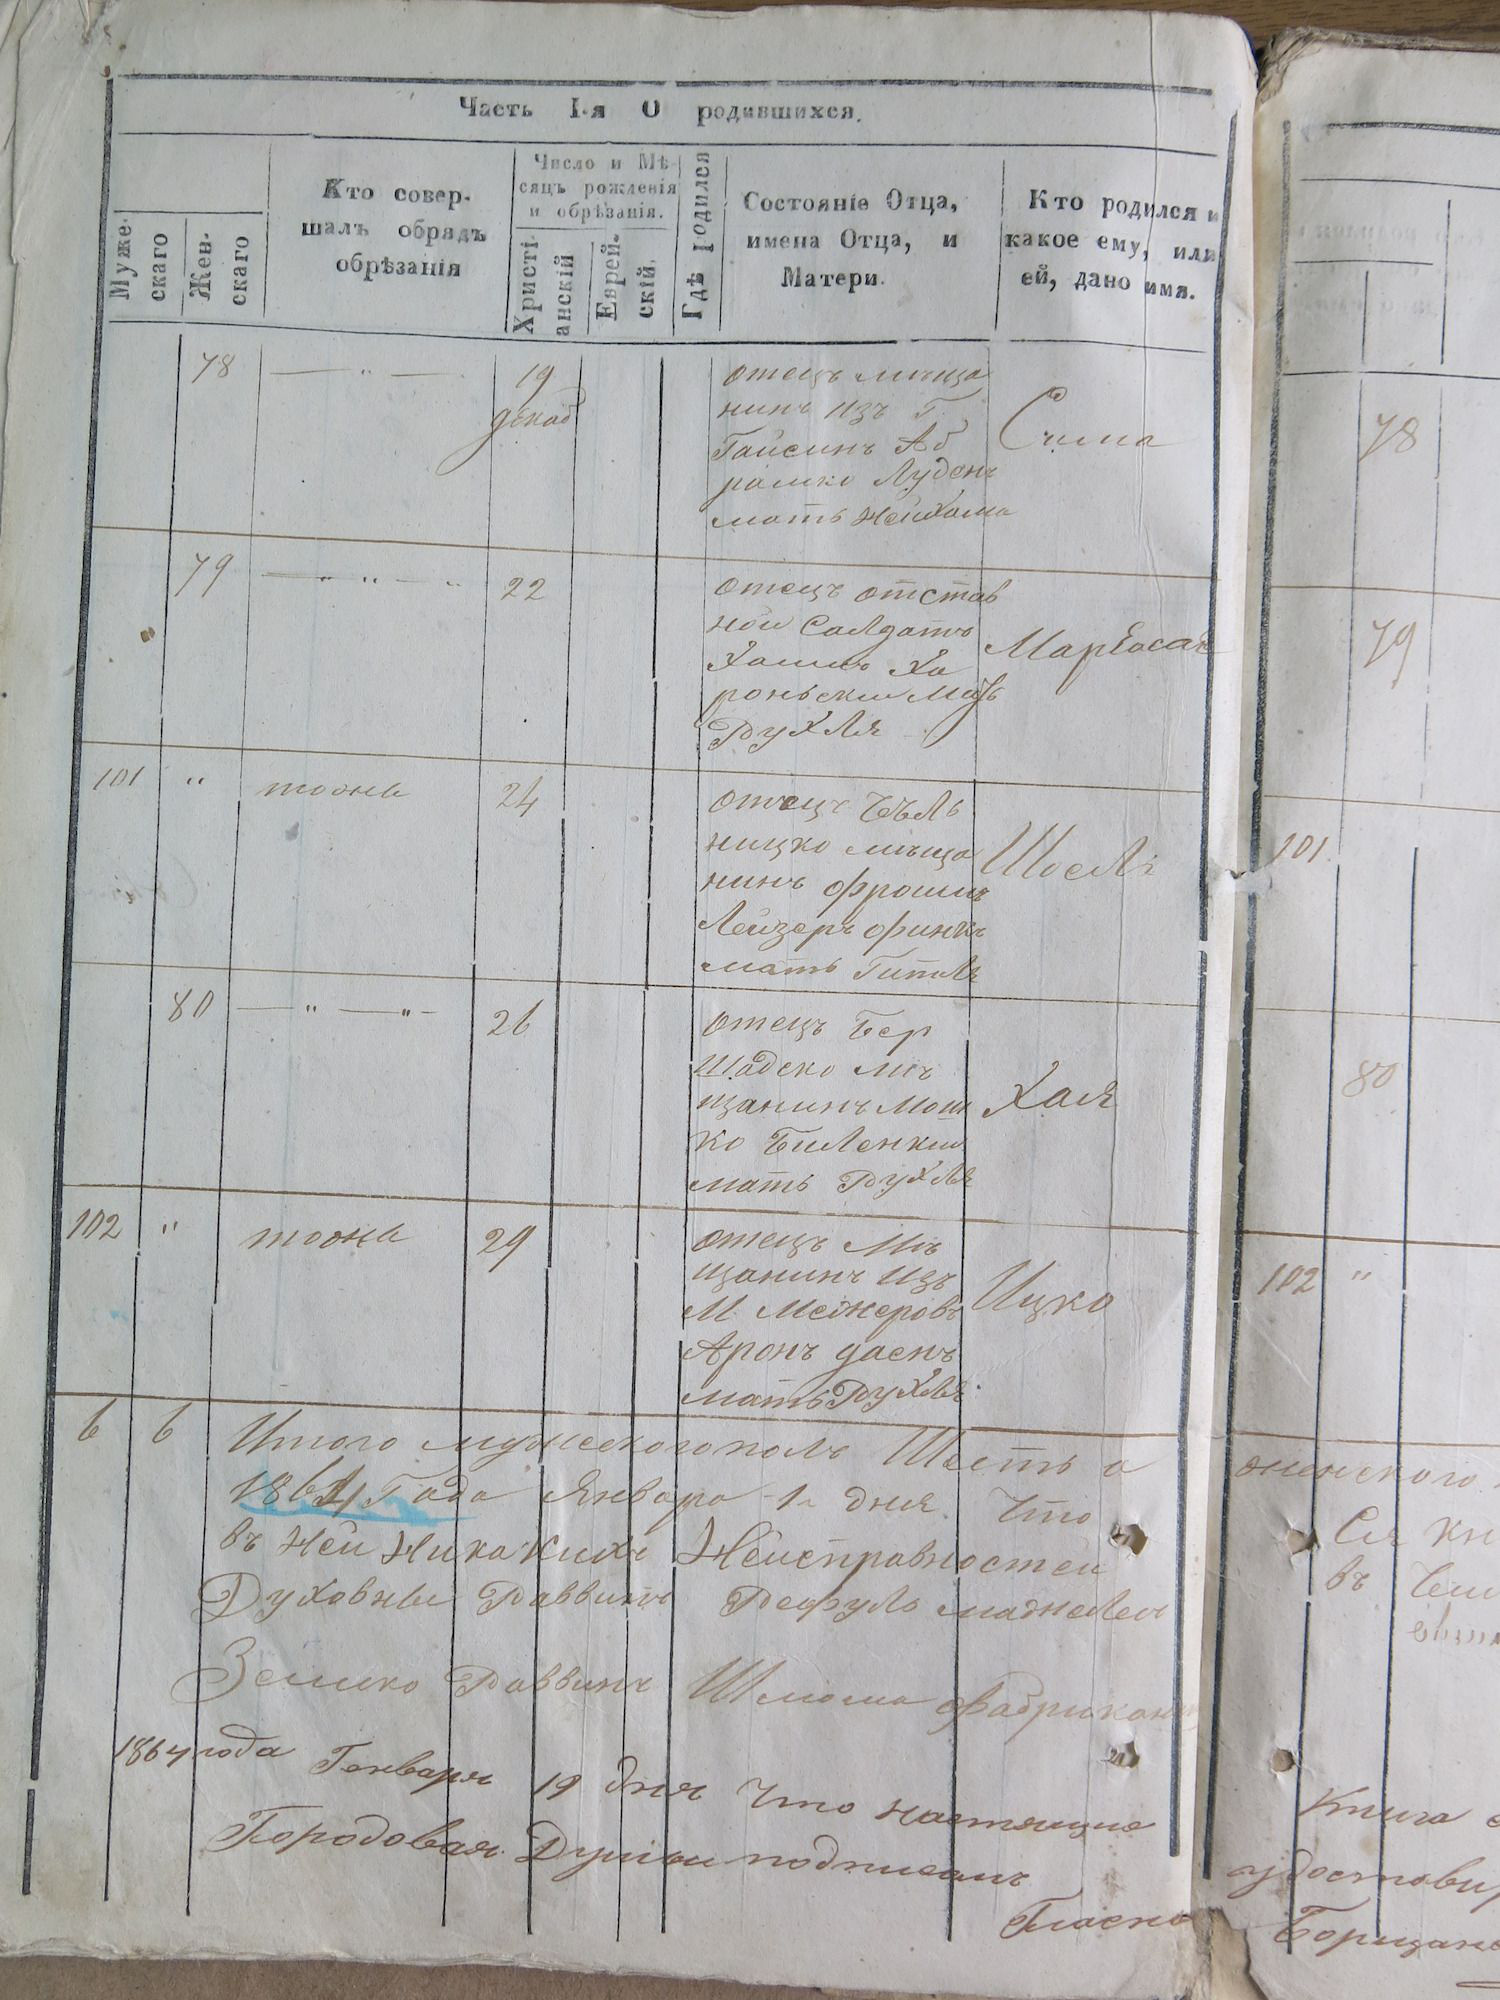 Часть I-я О родившихся.
Муже-
скаго
Жен-
скаго
Кто совер-
шалъ обрядъ
обрѣзанія
Число и Мѣ-
сяцъ рожденія
и обрѣзанія.
Христі-
анскій
Еврей-
скій.
Гдѣ родился
Состояніе Отца,
имена Отца, и
Матери.
Кто родился и
какое ему, или
ей, дано имя.
78 — " — 19
декаб
отецъ мѣща
нинъ изъ Г.
Гайсинъ Аб
рамко Лудень
мать Нейхома
Сима
79 — " " — " 22
отецъ отстав
ной Салдатъ
Хаимъ Ха
роньски Мать
Рухля
101 " тоонъ 24
отецъ
ницко мѣща
нинъ Фроимъ
Лейзеръ Финкъ
мать Гитль
80 — " — " — 26
отецъ Бер
шадско мѣ
щанинъ Мош
ко Биленкии
мать Рухля
Хая
102 " тоонъ 29
отецъ Мѣ
щанинъ изъ
М.
Аронъ
мать Рухля
Ицко
6 6 Итого мужескогополъ Шесть а
Года Января 1 дня Что
въ ней Никакихъ Неисправностей
Духовны Раввинъ
Земско Раввинъ Шлома Фабрикант
1864 года Генваря 19 дня Что настяще
Городовая Думы подписамъ
Гласно
78
79
101
80
102 "
женского
Ся кн
въ
Книга
удостовир